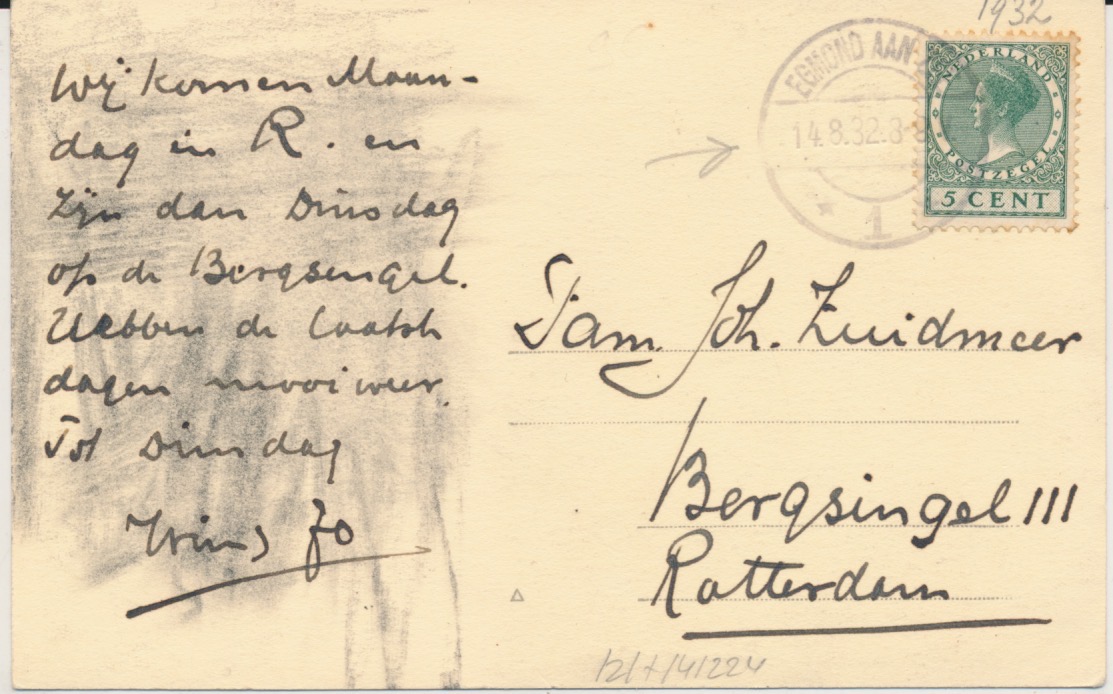 Wij komen Maan-
dag in R. en
zijn dan Dinsdag
op de Bergsengel.
Hebben de laatste
dagen mooi weer.
Tot Dinsdag
Jo
1932
EGMOND AAN
14.8.32.8
1
NEDERLAND
POSTZEGEL
5 CENT
Fam. Joh. Zuidmeer
Bergsingel 111
Rotterdam